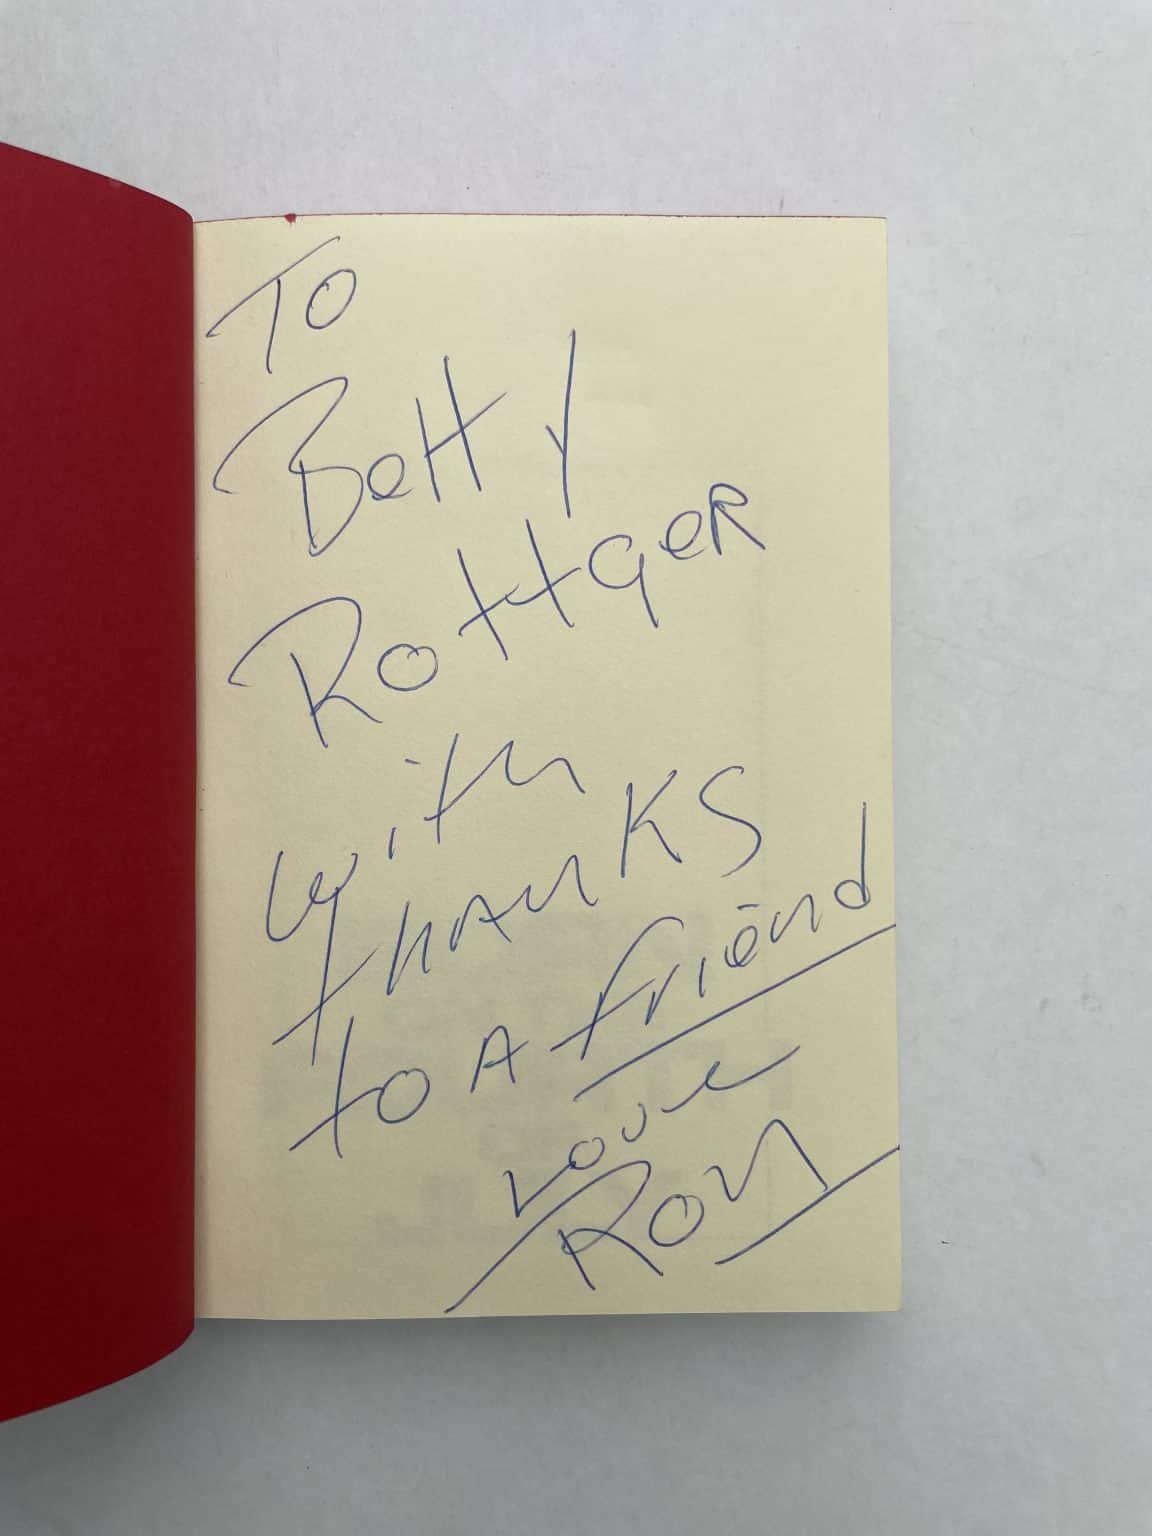 To
Betty
Rottger
with
thanks
to A friend
Love
Ron